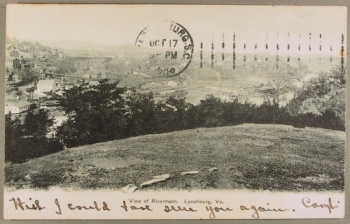 BURG S.C.
OCT 17
PM
View of Rivermont. Lynchburg, Va.
Wish I could have seen you again. Caryl.